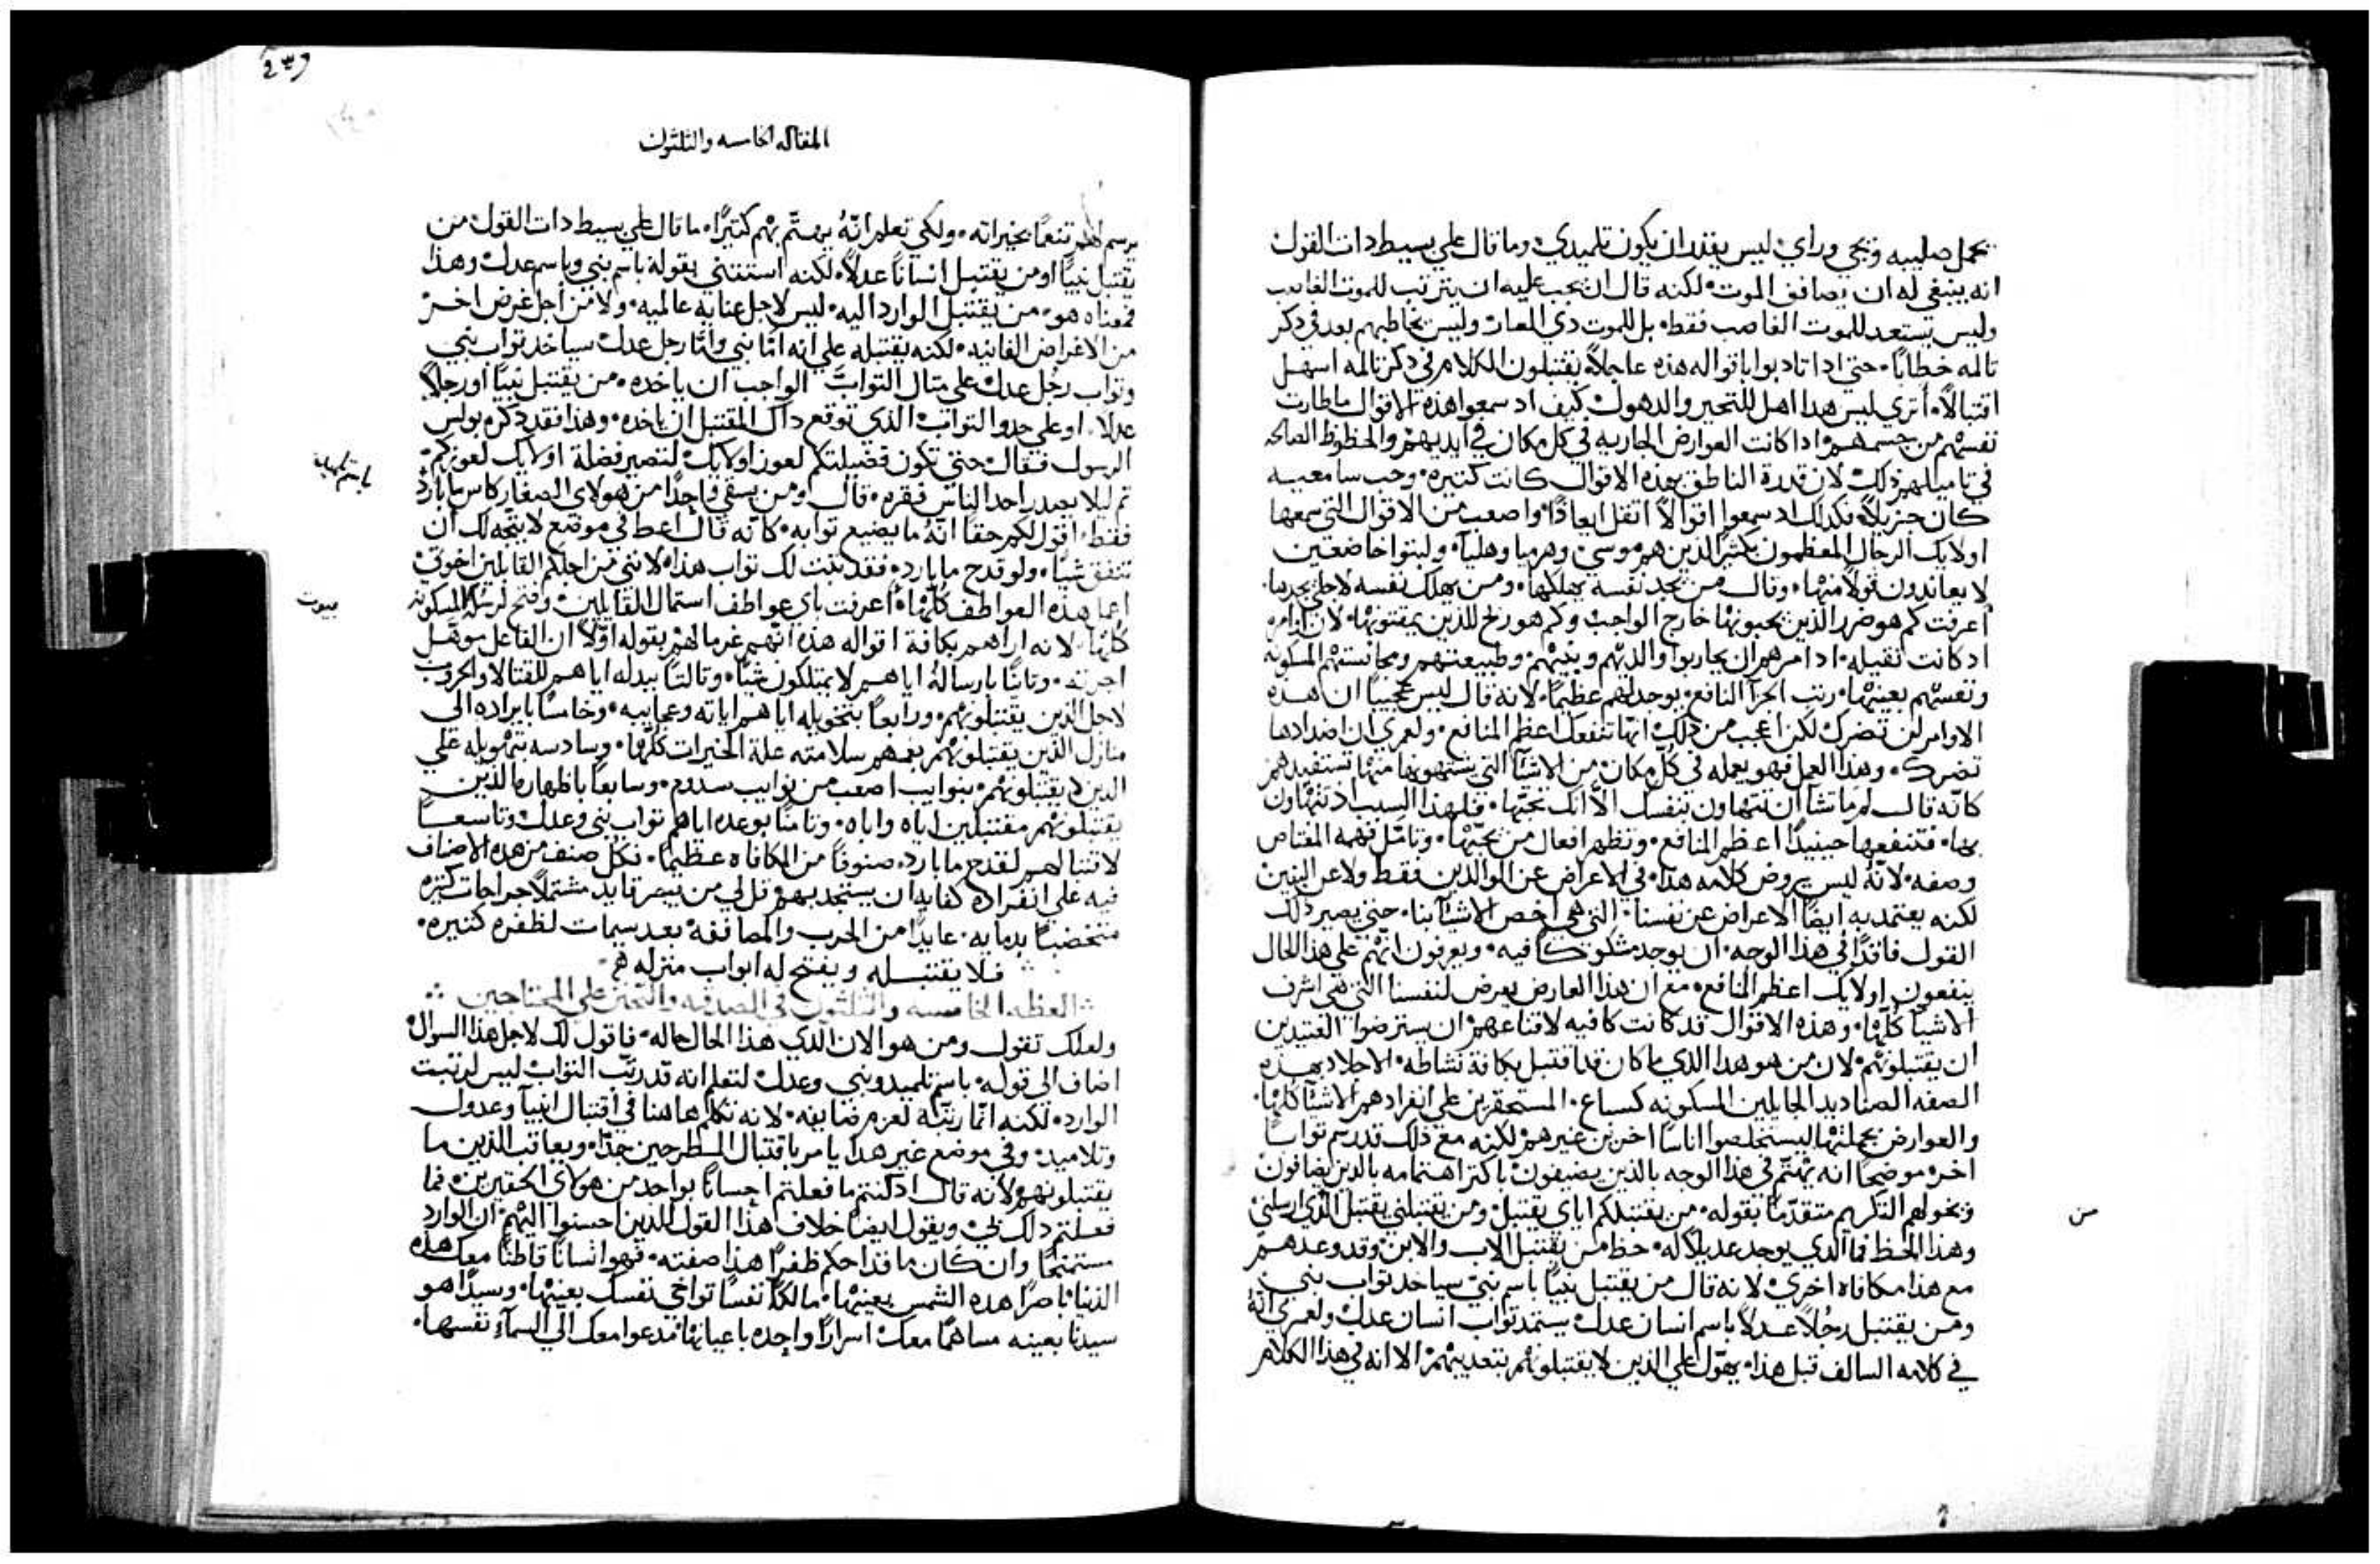 يحمل صليبه ويجي وراي ليس يقتدر ان يكون تلميدي وما قال علي بسيط دات القول
انه ينبغي له ان يصافق الموت لكنه قال ان يجب عليه ان يترتب للموت الغاصب
وليس يستعد للموت الغاصب فقط بل للموت دي العار وليس يخاطبهم بعد في دكر
تالمه خطابا حتي ادا تادبوا باقواله هده عاجلا يقتبلون الكلام في دكر تالمه اسهل
اقتبالا أتري ليس هدا اهل للتحير والدهول كيف اد سمعوا هذه الاقوال ما طارت
نفسهم من جسمهم وادا كانت العوارض الجاريه في كل مكان في ايديهم والحظوظ الصالحه
في تاميلهم ذلك لان قدرة الناطق بهذه الاقوال كانت كتيره وحب سامعيه
كان جزيلا فكدلك اد سمعوا اقوالا اتقل ايعادا واصعب من الاقوال التي سمعها
اوليك الرجال المعظمون بكثير الذين هم موسي وهرميا وهليآ ولبتوا خاضعين
لا يعاندون قولا منها وقال من يجد نفسه يهلكها ومن يهلك نفسه لاجلي يجدها
أعرفت كم هو ضرر الذين يحبونها خارج الواجب وكم هو ربح للذين يمقتونها لان اوامره
اد كانت تقيله اد امرهم ان يحاربوا والديهم وبنيهم وطبيعتهم ومجانستهم المسكونه
ونفسهم بعينها رتب الجزآ النافع يوجد لهم عظيما لانه قال ليس عجيبا ان هده
الاوامر لن تضرك لكن اعجب من ذلك انها تنفعك اعظم المنافع ولعمري ان اضدادها
تضرك وهذا العمل فهو يعمله في كل مكان من الاشيآ التي يشتهونها منها تستفيدهم
كانه قال لم ما تشآ ان تتهاون بنفسك الا انك تحبها فلهذا السبب اد تتهاون
بها فتنفعها حينيدا اعظم المنافع وتظهر افعال من يحبها وتامل فهمه المقتاص
وصفه لانه ليس يروض كلامه هدا في الاعراض عن الوالدين فقط ولا عن البنين
لكنه يعتمد به ايضا الاعراض عن نفسنا التي هي اخص الاشيآ بنا حتي يصير دلك
القول فاقدا في هذا الوجه ان يوجد مشكوكا فيه ويعرفون انهم علي هذا الحال
ينفعون اوليك اعظم المنافع مع ان هذا العارض يعرض لنفسنا التي هي اشرف
الاشيآ كلها وهذه الاقوال قد كانت كافيه لاقناعهم ان يسترضوا العتيدين
ان يقتبلونهم لان من هو هدا الذي ما كان قد اقتبل بكافة نشاطه الاجلاد بهده
الصفه الصناديد الجايلين المسكونه كسباع المستحقرين علي انفرادهم الاشيآ كلها
والعوارض بجملتها ليستخلصوا اناسا اخرين غيرهم لكنه مع ذلك قد رسم توابا
اخر موضحا انه يهتم في هذا الوجه بالذين يضيفون باكتر اهتمامه بالدين يضافون
ويخولهم التكريم متقدما بقوله من يقتبلكم اياي يقتبل ومن يقتبلني يقتبل الذي ارسلني
من
وهذا الحظ فما الدي يوجد عديلا له حظ من يقتبل الاب والابن وقد وعدهم
مع هذا مكافاه اخري لانه قال من يقتبل نبيا باسم نبي سياخد تواب نبي
ومن يقتبل رجلا عدلا باسم انسان عدل يستمد تواب انسان عدل ولعمري انه
في كلامه السالف قبل هذا يهول علي الذين لا يقتبلونهم بتعديبهم الا انه في هذا الكلام
المقاله الخامسه والتلثون
يرسم لهم تنعما بخيراته ولكي تعلم انه يهتم بهم كتيرا ما قال علي بسيط دات القول من
يقتبل نبيا او من يقتبل انسانا عدلا لكنه استتني بقوله باسم نبي وباسم عدل وهذا
فمعناه هو من يقتبل الوارد اليه ليس لاجل عنايه عالميه ولا من اجل غرض اخر
من الاغراض الفانيه لكنه يقتبله علي انه اما نبي واما رجل عدل سياخد تواب نبي
وتواب رجل عدل علي متال التواب الواجب ان ياخده من يقتبل نبيا او رجلا
عدلا او علي حدو التواب الذي توقع داك المقتبل ان ياخده وهذا فقد دكره بولس
الرسول فقال حتي تكون فضيلتكم لعوز اوليك لتصير فضلة اوليك لعوزكم
تم ليلا يعتدر احد الناس بفقره قال ومن يسقي واحدا من هولاي الصغار كاس ما بارد
باسم تلميد
فقط اقول لكم حقا انه ما يضيع توابه كانه قال اعط في موضع لا يتجه لك ان
تنفق شيا ولو قدح ما بارد فقد تبت لك تواب هذا لانني من اجلكم القابلين اخوتي
اعمل هذه العواطف كلها أعرفت باي عواطف استمال القابلين وفتح لرسله المسكونه
بيوت
كلها لانه اراهم بكافة اقواله هده انهم غرما لهم بقوله اولا ان الفاعل موهل
اجرته وتانيا بارساله اياهم لا يمتلكون شيا وتالتا ببدله اياهم للقتالا والحروب
لاجل الذين يقتبلونهم ورابعا بتخويله اياهم اياته وعجايبه وخامسا بايراده الي
منازل الذين يقتبلونهم بفمهم سلامته علة الخيرات كلها وسادسه بتهويله علي
الدين لا يقتبلونهم بنوايب اصعب من نوايب سدوم وسابعا باظهاره الذين
يقتبلونهم مقتبلين اياه واباه وتامنا بوعده اياهم تواب نبي وعدل وتاسعا
لاتنا لهم لقدح ما بارد صنوفا من المكافاه عظيما فكل صنف من هده الاصناف
فيه علي انفراده كفايه ان يستجدبهم وقل لي من يبصر قايد مشتملا جراحات كتيره
متخضبا بدمايه عايدا من الحرب والمصاففه بعد سيمات لظفره كتيره
فلا يقتبله ويفتح له ابواب منزله
العظه الخامسه والتلتون في الصدقه والتحنن علي المحتاجين
ولعلك تقول ومن هو الان الذي هذا الحال حاله فاقول لك لاجل هذا السوال
اضاف الي قوله باسم تلميد ونبي وعدل لتعلم انه قد رتب التواب ليس لرتبت
الوارد لكنه انما رتبه لعزم مضايفه لانه تكلم هاهنا في اقتبال انبيآ وعدول
وتلاميد وفي موضع غير هدا يامر باقتبال المطرحين جدا ويعاقب الذين ما
يقتبلونهم لانه قال اد كنتم ما فعلتم احسانا بواحد من هولاي الحقيرين فما
فعلتم دلك لي ويقول ايضا خلاف هذا القول للدين احسنوا اليهم ان الوارد
مستمنحا وان كان ما قد احكم ظفرا هذا صفته فهو انسانا قاطنا معك هده
الدنيا باصرا هده الشمس بعينها مالكا نفسا تواخي نفسك بعينها وسيدا هو
سيدنا بعينه مساهما معك اسرارا واحده باعيانها مدعوا معك الي السمآء نفسها